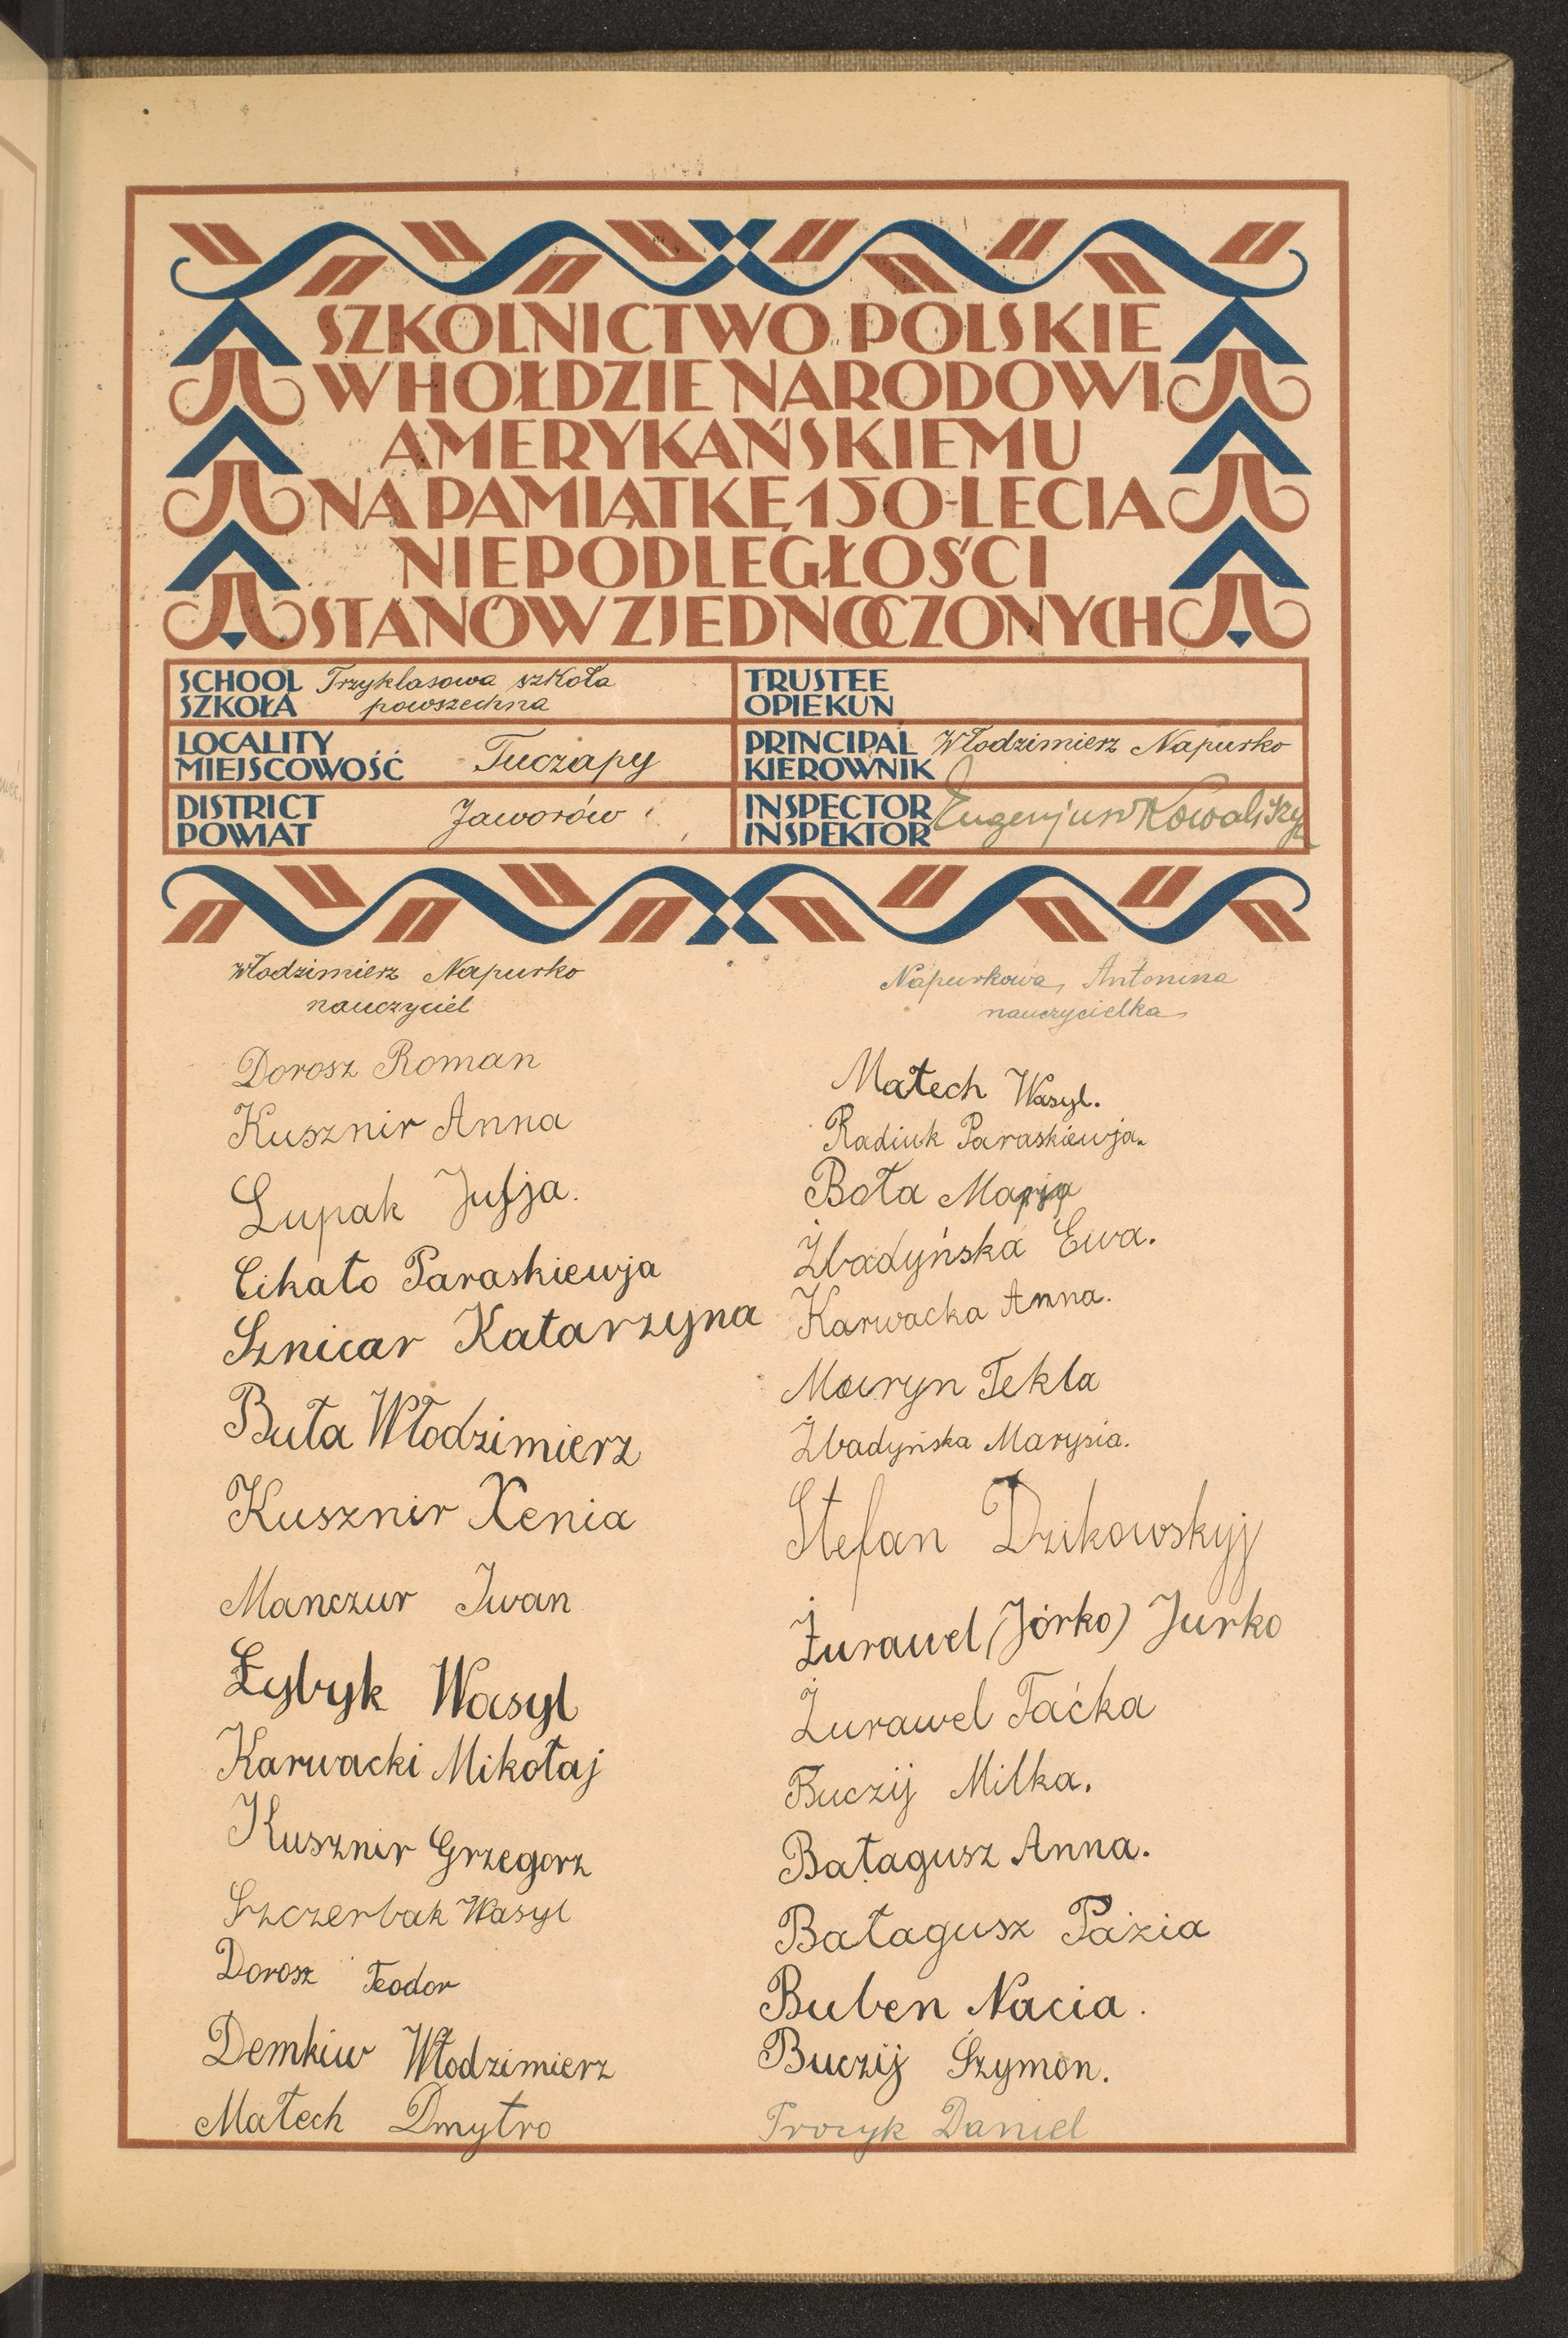 SZKOLNICTWO POLSKIE
W HOŁDZIE NARODOWI
AMERYKAŃSKIEMU
NA PAMIĄTKĘ 150-LECIA
NIEPODLEGŁOŚCI
STANÓW ZJEDNOCZONYCH
SCHOOL Trzyklasowa szkoła
SZKOŁA powszechna
TRUSTEE
OPIEKUN
LOCALITY
MIEJSCOWOŚĆ Tuczapy
PRINCIPAL Włodzimierz Napurko
KIEROWNIK
DISTRICT
POWIAT Jaworów
INSPECTOR Eugenjusz Kowalski
INSPEKTOR
Włodzimierz Napurko
nauczyciel
Dorosz Roman
Kusznir Anna
Lupak Julja.
Cikało Paraskiewja
Sznicar Katarzyna
Buta Włodzimierz
Kusznir Xenia
Manczur Iwan
Łybyk Wasyl
Karwacki Mikołaj
Kusznir Grzegorz
Szczerbak Wasyl
Dorosz Teodor
Demkiw Włodzimierz
Małech Dmytro
Napurkowa, Antonina
nauczycielka
Małech Wasyl.
Radiuk Paraskiewja.
Bota Marja
Żbadyńska Ewa.
Karwacka Anna.
Mauryn Tekla
Żbadyńska Marysia.
Stefan Dzikowskyj
Żurawel (Jórko) Jurko
Żurawel Taćka
Buczij Milka.
Bałagusz Anna.
Bałagusz Paźia
Buben Nacia.
Buczij Szymon.
Trocyk Daniel